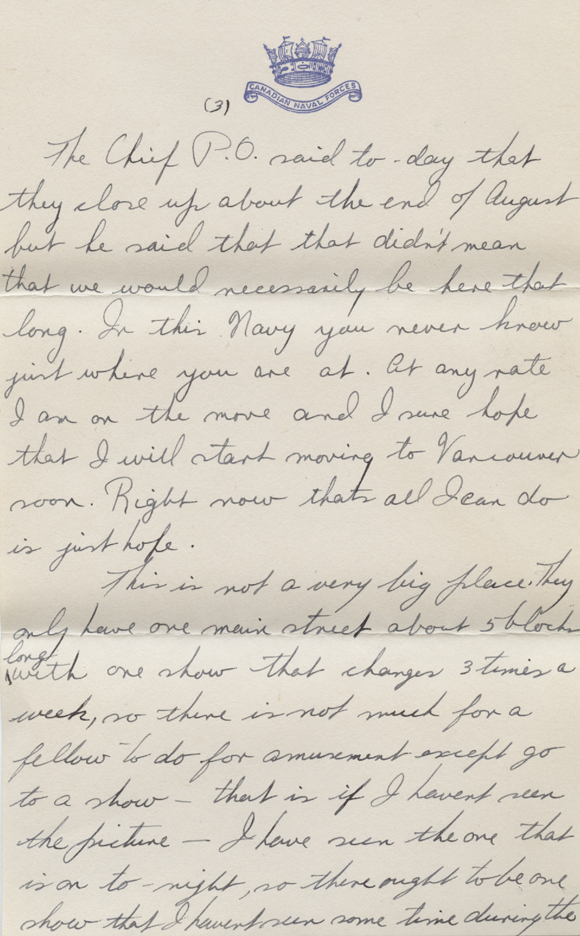 CANADIAN NAVAL FORCES
(3)
The Chief P.O. said to-day that
they close up about the end of August
but he said that that didn't mean
that we would necessarily be here that
long. In this Navy you never know
just where you are at. At any rate
I am on the move and I sure hope
that I will start moving to Vancouver
soon. Right now thats all I can do
is just hope.
This is not a very big place. They
only have one main street about 5 blocks
long
with one show that changes 3 times a
week, so there is not much for a
fellow to do for amusement except go
to a show — that is if I havent seen
the picture — I have seen the one that
is on to-night, so there ought to be one
show that I havent seen some time during the